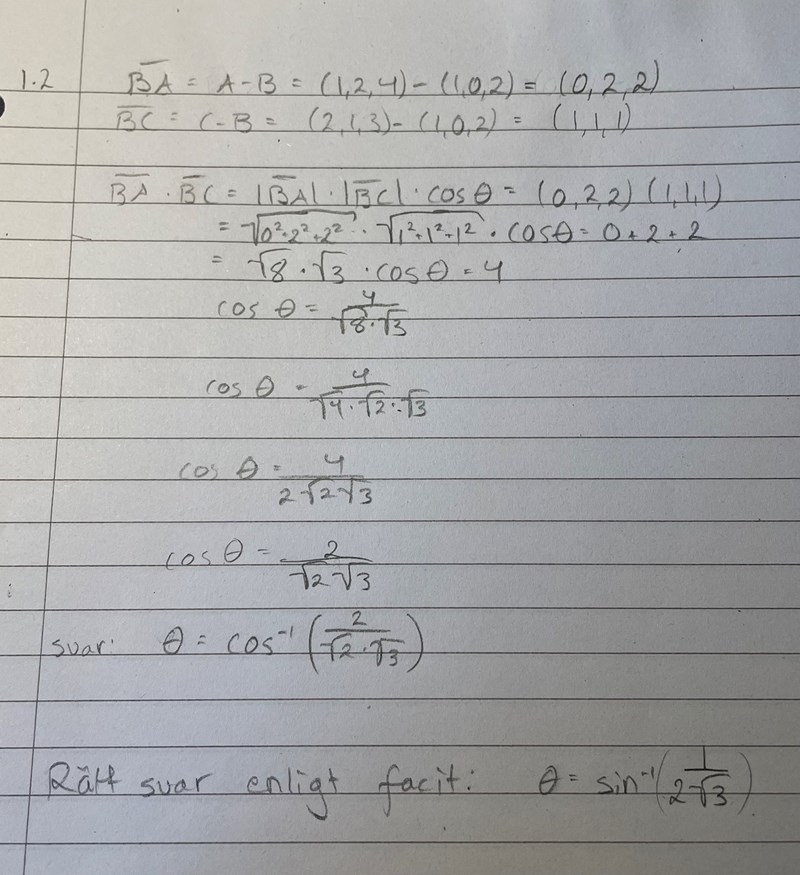 1.2 BA = A-B = (1,2,4)-(1,0,2) = (0,2,2)
BC = C-B = (2,1,3)-(1,0,2) = (1,1,1)
BA · BC = |BA| · |BC| · cos θ = (0,2,2) (1,1,1)
= √0²+2²+2² · √1²+1²+1² · cosθ = 0+2+2
= √8 · √3 · cos θ = 4
cos θ = 4/√8·√3
cos θ = 4/√4·√2·√3
cos θ = 4/2√2√3
cos θ = 2/√2√3
svar: θ = cos⁻¹ (2/√2·√3)
Rätt svar enligt facit: θ = sin⁻¹(1/2√3)